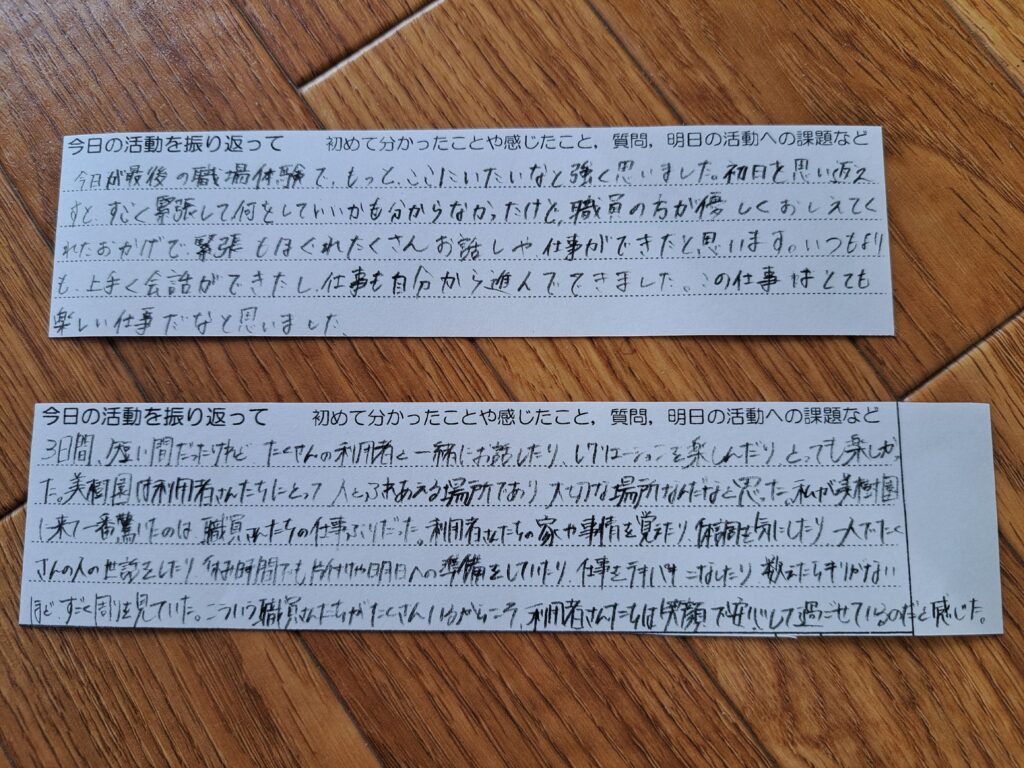 今日の活動を振り返って　初めて分かったことや感じたこと，質問，明日の活動への課題など
今日が最後の職場体験で、もっと、ここにいたいなと強く思いました。初日を思い返え
すと、すごく緊張して何をしていいかも分からなかったけど、職員の方が優しくおしえてく
れたおかげで、緊張もほぐれたくさんお話しや、仕事ができたと思います。いつもより
も、上手く会話ができたし、仕事も自分から進んでできました。この仕事はとても
楽しい仕事だなと思いました。
今日の活動を振り返って　初めて分かったことや感じたこと，質問，明日の活動への課題など
3日間、短い間だったけれど、たくさんの利用者と一緒にお話したり、レクリエーションを楽しんだり、とっても楽しかっ
た。美樹園は利用者さんたちにとって人とふれあえる場所であり大切な場所なんだなと思った。私が美樹園
に来て一番驚いたのは職員さんたちの仕事ぶりだった。利用者さんたちの家や事情を覚えたり、体調を気にしたり、一人でたく
さんの人の世話をしたり、休み時間でも片付けや明日への準備をしていたり、仕事をテキパキこなしたり、数えたらキリがない
ほど、すごく周りを見ていた。こういう職員さんたちがたくさんいるからこそ、利用者さんたちは笑顔で安心して過ごせているのだと感じた。